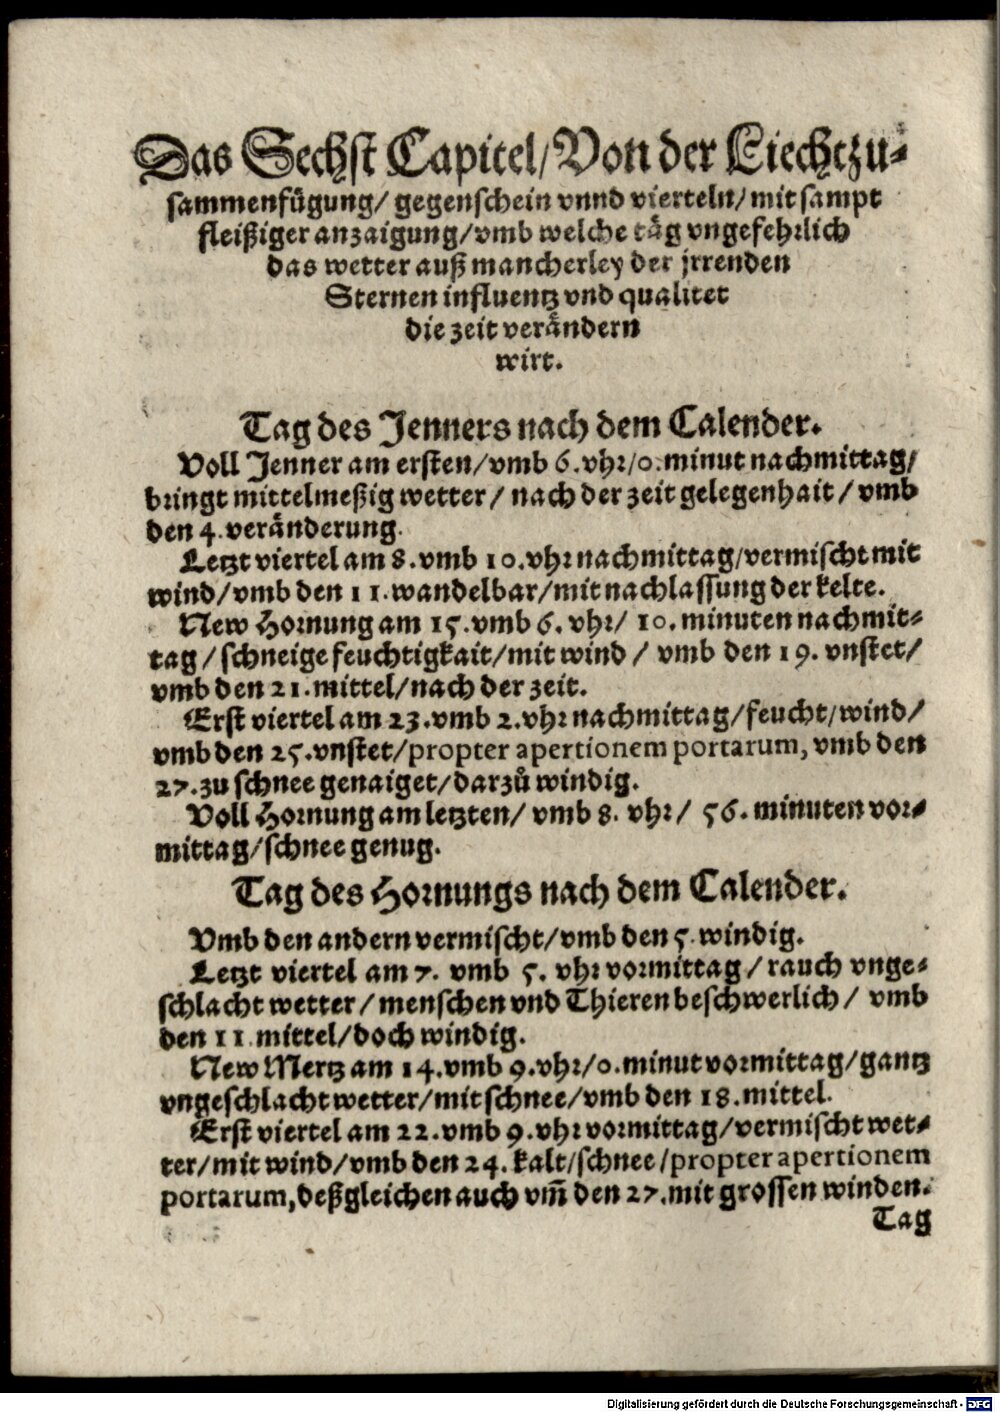 Das Sechst Capitel/ Von der Liechtzu-
sammenfügung/ gegenschein vnnd vierteln/ mit sampt
fleißiger anzaigung/ vmb welche täg vngefehrlich
das wetter auß mancherley der jrrenden
Sternen influentz vnd qualitet
die zeit verändern
wirt.
Tag des Jenners nach dem Calender.
Voll Jenner am ersten/ vmb 6. vhr/ 0. minut nachmittag/
bringt mittelmeßig wetter/ nach der zeit gelegenhait/ vmb
den 4. veränderung.
Letzt viertel am 8. vmb 10. vhr nachmittag/ vermischt mit
wind/ vmb den 11. wandelbar/ mit nachlassung der kelte.
New Hornung am 15. vmb 6. vhr/ 10. minuten nachmit-
tag/ schneige feuchtigkait/ mit wind/ vmb den 19. vnstet/
vmb den 21. mittel/ nach der zeit.
Erst viertel am 23. vmb 2. vhr nachmittag/ feucht/ wind/
vmb den 25. vnstet/ propter apertionem portarum, vmb den
27. zu schnee genaiget/ darzů windig.
Voll Hornung am letzten/ vmb 8. vhr/ 56. minuten vor-
mittag/ schnee genug.
Tag des Hornungs nach dem Calender.
Vmb den andern vermischt/ vmb den 5. windig.
Letzt viertel am 7. vmb 5. vhr vormittag/ rauch vnge-
schlacht wetter/ menschen vnd Thieren beschwerlich/ vmb
den 11. mittel/ doch windig.
New Mertz am 14. vmb 9. vhr/ 0. minut vormittag/ gantz
vngeschlacht wetter/ mit schnee/ vmb den 18. mittel.
Erst viertel am 22. vmb 9. vhr vormittag/ vermischt wet-
ter/ mit wind/ vmb den 24. kalt/ schnee/ propter apertionem
portarum, deßgleichen auch vm̄ den 27. mit grossen winden.
Tag
Digitalisierung gefördert durch die Deutsche Forschungsgemeinschaft - DFG